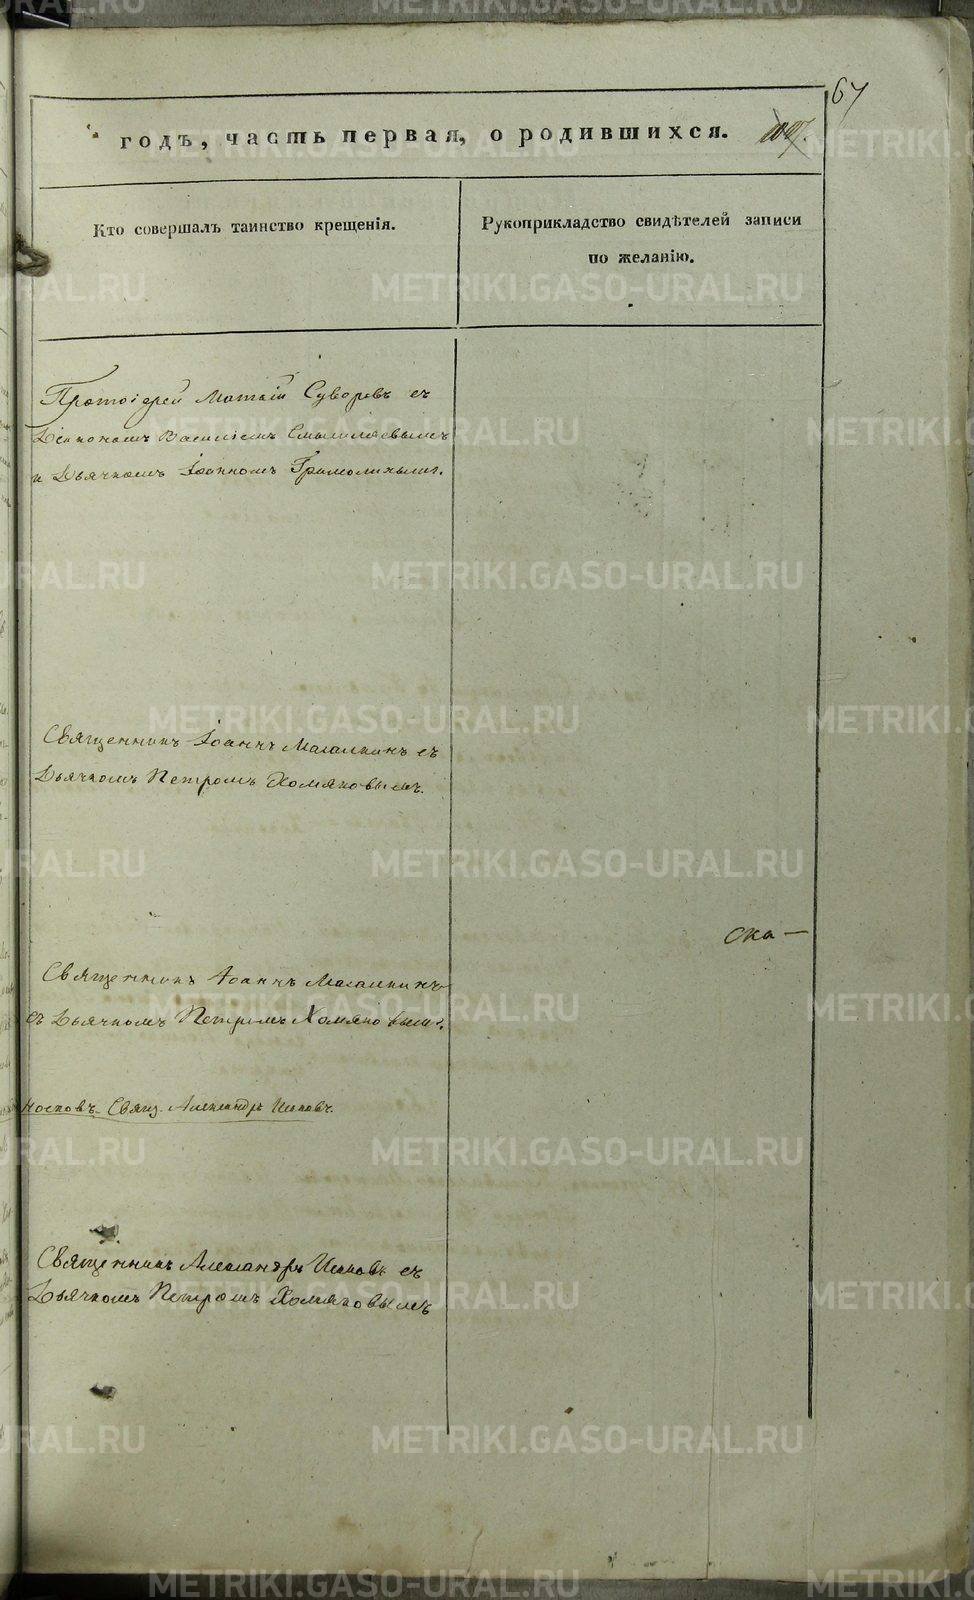 67
годъ, часть первая, о родившихся.
Кто совершалъ таинство крещенія.
Рукоприкладство свидѣтелей записи
по желанію.
Протоіерей Матѳій Суворовъ съ
Діакономъ Василіемъ Смышляевымъ
и Дьячкомъ Іоанномъ Грамолинымъ.
Священникъ Іоаннъ Масалкинъ съ
Дьячкомъ Петромъ Хомяковымъ.
ска—
Священникъ Іоаннъ Масалкинъ
съ Дьячкомъ Петромъ Хомяковымъ.
Свящ. Александръ
Священникъ Александръ съ
Дьячкомъ Петромъ Хомяковымъ
METRIKI.GASO-URAL.RU